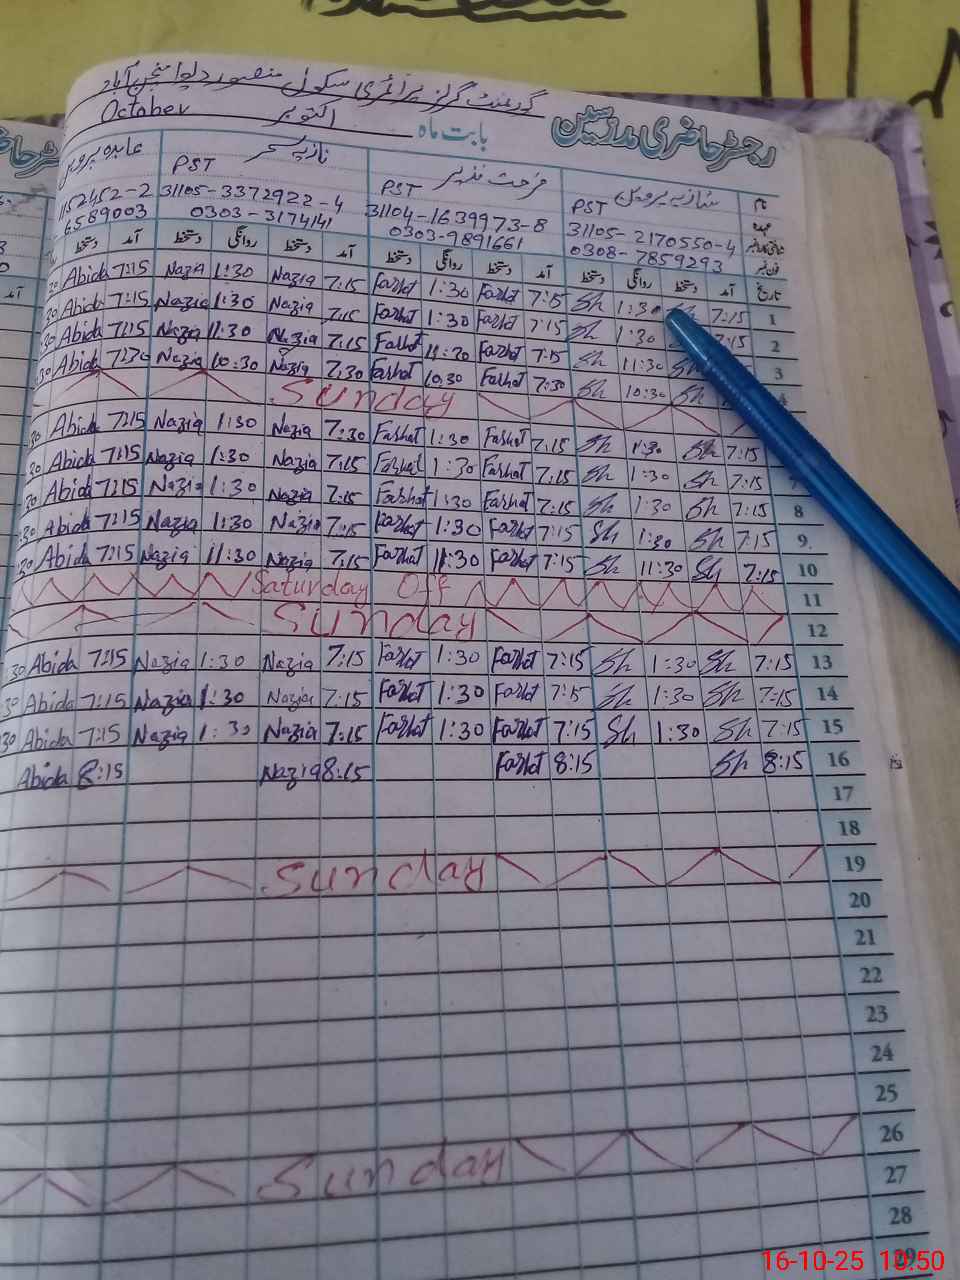 گورنمنٹ گرلز پرائمری سکول منصور دلوا منچن آباد
رجسٹر حاضری مدرسین
بابت ماہ اکتوبر October
نام شازیہ پروین فرحت نذیر نازیہ سحر عابدہ پروین
عہدہ PST PST PST
31105-2170550-4 31104-1639973-8 31105-3372922-4 152452-2
فون نمبر 0308-7859293 0303-9891661 0303-3174141 6589003
تاریخ آمد دستخط روانگی دستخط آمد دستخط روانگی دستخط آمد دستخط روانگی دستخط آمد دستخط
1 7:15 1:30 Sh 7:15 Farhat 1:30 Farhat 7:15 Nazia 1:30 Nazia 7:15 Abida
2 7:15 1:30 Sh 7:15 Farhat 1:30 Farhat 7:15 Nazia 1:30 Nazia 7:15 Abida
3 7:15 Sh 11:30 Sh 7:15 Farhat 11:30 Farhat 7:15 Nazia 11:30 Nazia 7:15 Abida
Sh 10:30 Sh 7:30 Farhat 10:30 Farhat 7:30 Nazia 10:30 Nazia 7:30 Abida
Sunday
7:15 Sh 1:30 Sh 7:15 Farhat 1:30 Farhat 7:30 Nazia 1:30 Nazia 7:15 Abida
7:15 Sh 1:30 Sh 7:15 Farhat 1:30 Farhat 7:15 Nazia 1:30 Nazia 7:15 Abida
8 7:15 Sh 1:30 Sh 7:15 Farhat 1:30 Farhat 7:15 Nazia 1:30 Nazia 7:15 Abida
9 7:15 Sh 1:30 Sh 7:15 Farhat 1:30 Farhat 7:15 Nazia 1:30 Nazia 7:15 Abida
10 7:15 Sh 11:30 Sh 7:15 Farhat 11:30 Farhat 7:15 Nazia 11:30 Nazia 7:15 Abida
11 Saturday Off
12 Sunday
13 7:15 Sh 1:30 Sh 7:15 Farhat 1:30 Farhat 7:15 Nazia 1:30 Nazia 7:15 Abida
14 7:15 Sh 1:30 Sh 7:15 Farhat 1:30 Farhat 7:15 Nazia 1:30 Nazia 7:15 Abida
15 7:15 Sh 1:30 Sh 7:15 Farhat 1:30 Farhat 7:15 Nazia 1:30 Nazia 7:15 Abida
16 8:15 Sh 8:15 Farhat 8:15 Nazia 8:15 Abida
17
18
19 Sunday
20
21
22
23
24
25
26 Sunday
27
28
29
16-10-25 10:50